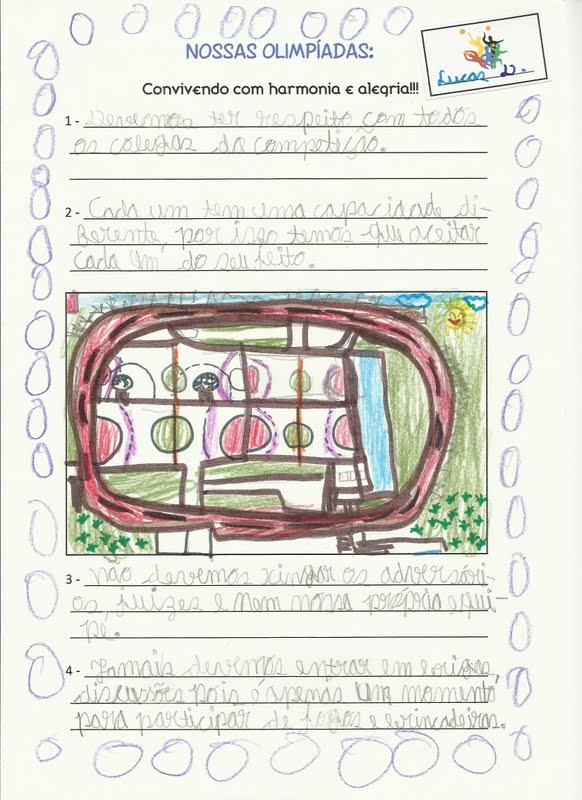 NOSSAS OLIMPÍADAS:
Lucas D.
Convivendo com harmonia e alegria!!!
1 - Devemos ter respeito com todos
os colegas da competição.
2 - Cada um tem uma capacidade di-
ferente, por isso temos que aceitar
cada um do seu jeito.
3 - Não devemos xingar os adversári-
os, juízes e nem nossa própria equi-
pe.
4 - Jamais devemos entrar em brigas,
discussões pois é apenas um momento
para participar de jogos e brincadeiras.